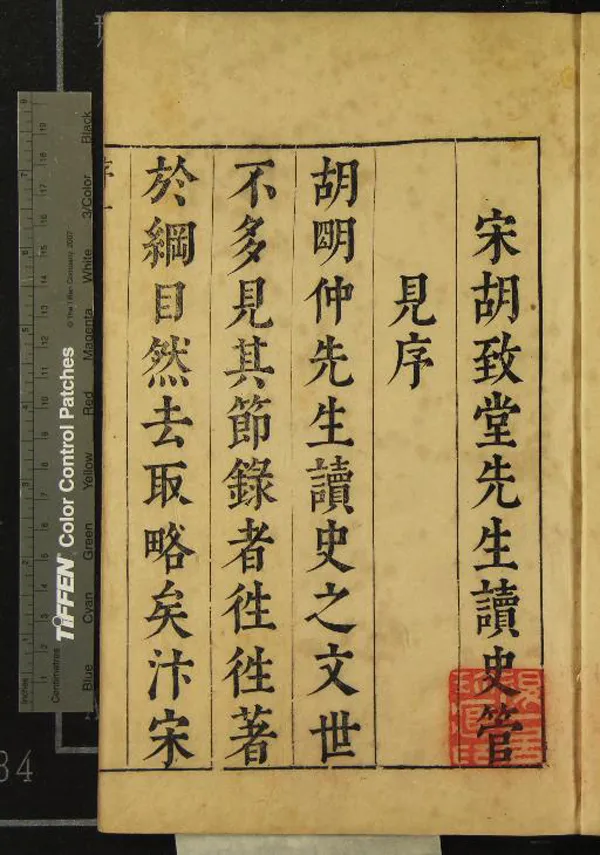 宋胡致堂先生讀史管
見序
胡明仲先生讀史之文世
不多見其節錄者徃徃著
於綱目然去取略矣汴宋
序
TIFFEN Color Control Patches
© The Tiffen Company, 2007
Inches
Centimetres
Blue Cyan Green Yellow Red Magenta White 3/Color Black